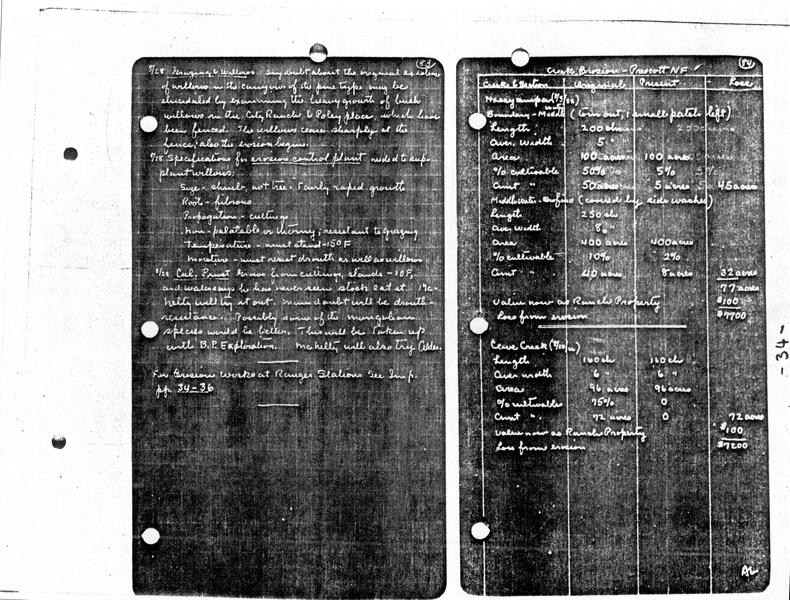 83
Grazing & willows any doubt about the original
of willows in the canyon of the pine type may be
elucidated by examining the heavy growth of
willows in the City Ranch & Poley place, which have
been fenced. The willows cease sharply at the
fence; also the erosion begins.
Specifications for erosion control plant needed to
plant willows:
Size - shrub, not tree. Fairly rapid growth
Root - fibrous
Propagation - cuttings
Non-palatable or thorny; resistant to grazing
Temperature - must stand -150F
Moisture - must resist drouth as well as willows
Cal. Privet grows from cuttings, stands -10F,
and he has never seen stock eat it.
will try it out. Main doubt will be drouth-
resistance. Possibly some of the mongolian
species would be better. This will be taken up
with B.P. Exploration. will also try Alder.
For Erosion Works at Ranger Stations See Insp.
pp. 34-36
84
Creek Erosion - Prescott NF
Creek & Section Original Present Loss
Boundary - Middle (torn out, 1 small patch left)
Length 200 ch
Aver. Width 5 "
Area 100 acres 100 acres
% cultivable 50% 5%
Amt " 50 acres 5 acres 45 acres
(covered by side washes)
Length 250 ch
Aver Width 8 "
Area 400 acres 400 acres
% cultivable 10% 2%
Amt " 40 acres 8 acres 32 acres
77 acres
Value now as Ranch Property $100
Loss from erosion $7700
Length 160 ch 160 ch
Aver width 6 " 6 "
Area 96 acres 96 acres
% cultivable 75% 0
Amt " 72 acres 0 72 acres
Value now as Ranch Property $100
Loss from erosion $7200
AL
-34-